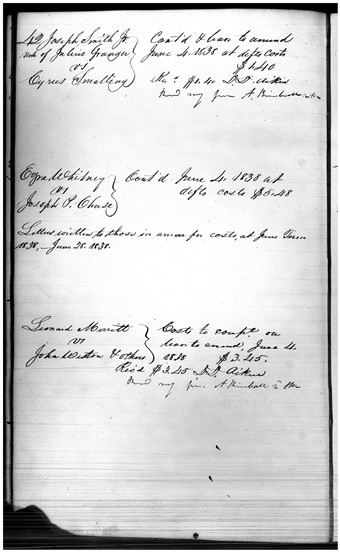 Joseph Smith Jr
use of Julius Granger
vs
Cyrus Smalling
Cont'd & leave to amend
June 4. 1838 at defts costs
$1.40
$1.40 D. D. Aikin
A. Kimball
Ezra Whitney
vs
Joseph P. Chase
Cont'd June 4. 1838 at
defts costs $5.48
Letters written to those in arrear for costs, at June Term
1838,—June 28. 1838.
Leonard Merritt
vs
John Weston & others
Costs to compt. on
leave to amend, June 4.
1838 $3.45.
Rec'd $3.45 D. D. Aikin
A Kimball